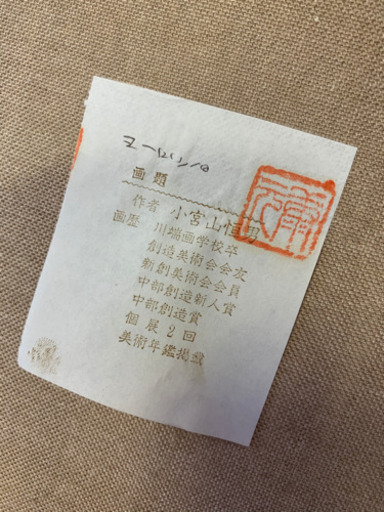 画題
作者 小宮山恒
画歴 川端画学校卒
創造美術会会友
新創美術会会員
中部創造新人賞
中部創造賞
個展2回
美術年鑑掲載